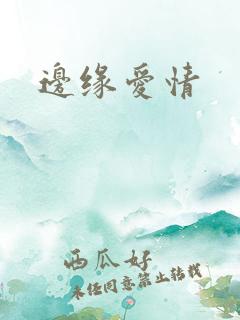 邊缘愛情
西瓜好
未经同意禁止转载